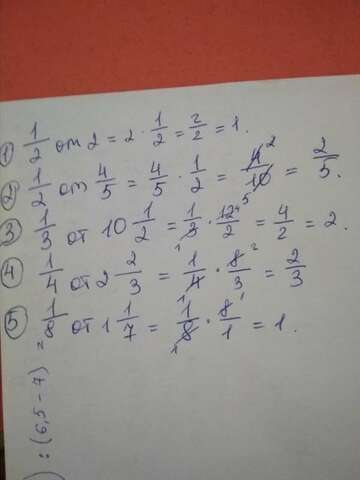 ① 1/2 от 2 = 2 · 1/2 = 2/2 = 1.
② 1/2 от 4/5 = 4/5 · 1/2 = 4²/10₅ = 2/5.
③ 1/3 от 10 1/2 = 1/3₁ · 12⁴/2 = 4/2 = 2.
④ 1/4 от 2 2/3 = 1/4₁ · 8²/3 = 2/3
⑤ 1/8 от 1 1/7 = 1/8₁ · 8¹/1 = 1.
: (6,5 - 7)